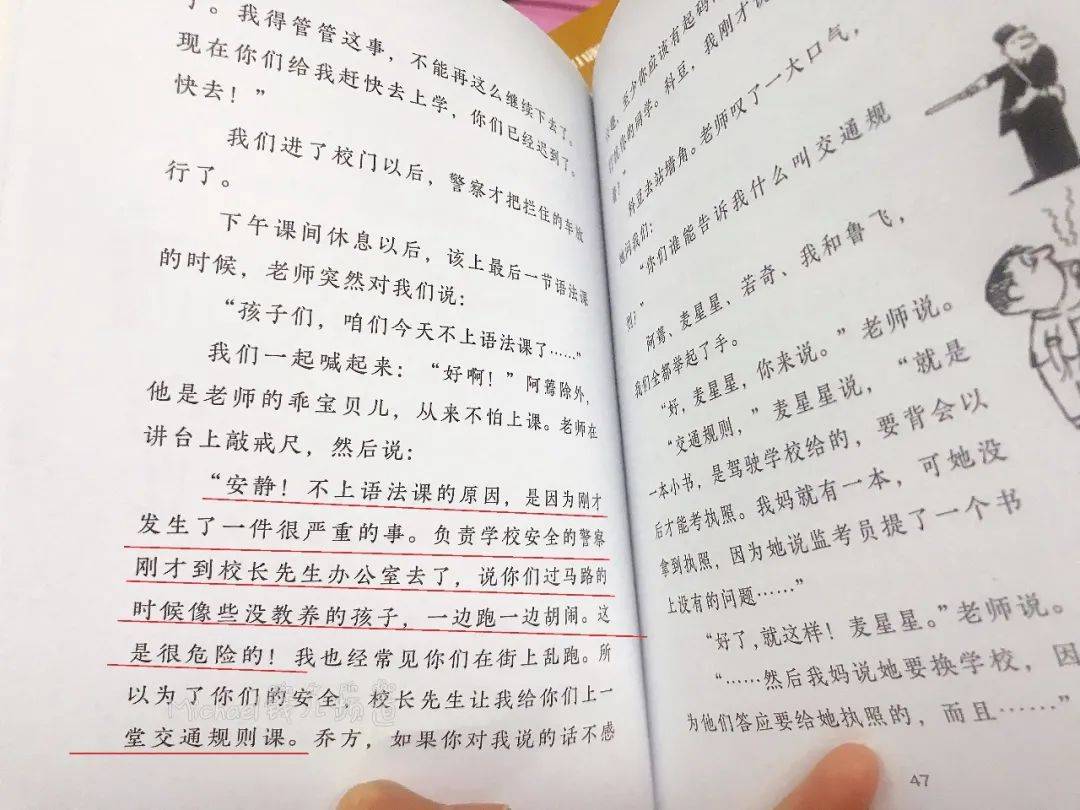 了。我得管管这事，不能再这么继续下去了。
现在你们给我赶快去上学，你们已经迟到了。
快去！”
我们进了校门以后，警察才把拦住的车放
行了。
下午课间休息以后，该上最后一节语法课
的时候，老师突然对我们说：
“孩子们，咱们今天不上语法课了……”
我们一起喊起来：“好啊！”阿蔫除外，
他是老师的乖宝贝儿，从来不怕上课。老师在
讲台上敲戒尺，然后说：
“安静！不上语法课的原因，是因为刚才
发生了一件很严重的事。负责学校安全的警察
刚才到校长先生办公室去了，说你们过马路的
时候像些没教养的孩子，一边跑一边胡闹。这
是很危险的！我也经常见你们在街上乱跑。所
以为了你们的安全，校长先生让我给你们上一
堂交通规则课。乔方，如果你对我说的话不感
至少你应该有起码
你的同学。科豆，我刚才说
科豆去站墙角。老师叹了一大口气，
她问我们：
“你们谁能告诉我什么叫交通规
？”
阿蔫、麦星星、若奇、我和鲁飞，
我们全都举起了手。
“好，麦星星，你来说。”老师说。
“交通规则，”麦星星说，“就是
一本小书，是驾驶学校给的，要背会以
后才能考执照。我妈就有一本，可她没
拿到执照，因为她说监考员提了一个书
上没有的问题……”
“好了，就这样！麦星星。”老师说。
“……然后我妈说她要换学校，因
为他们答应要给她执照的，而且……”
47
Michael